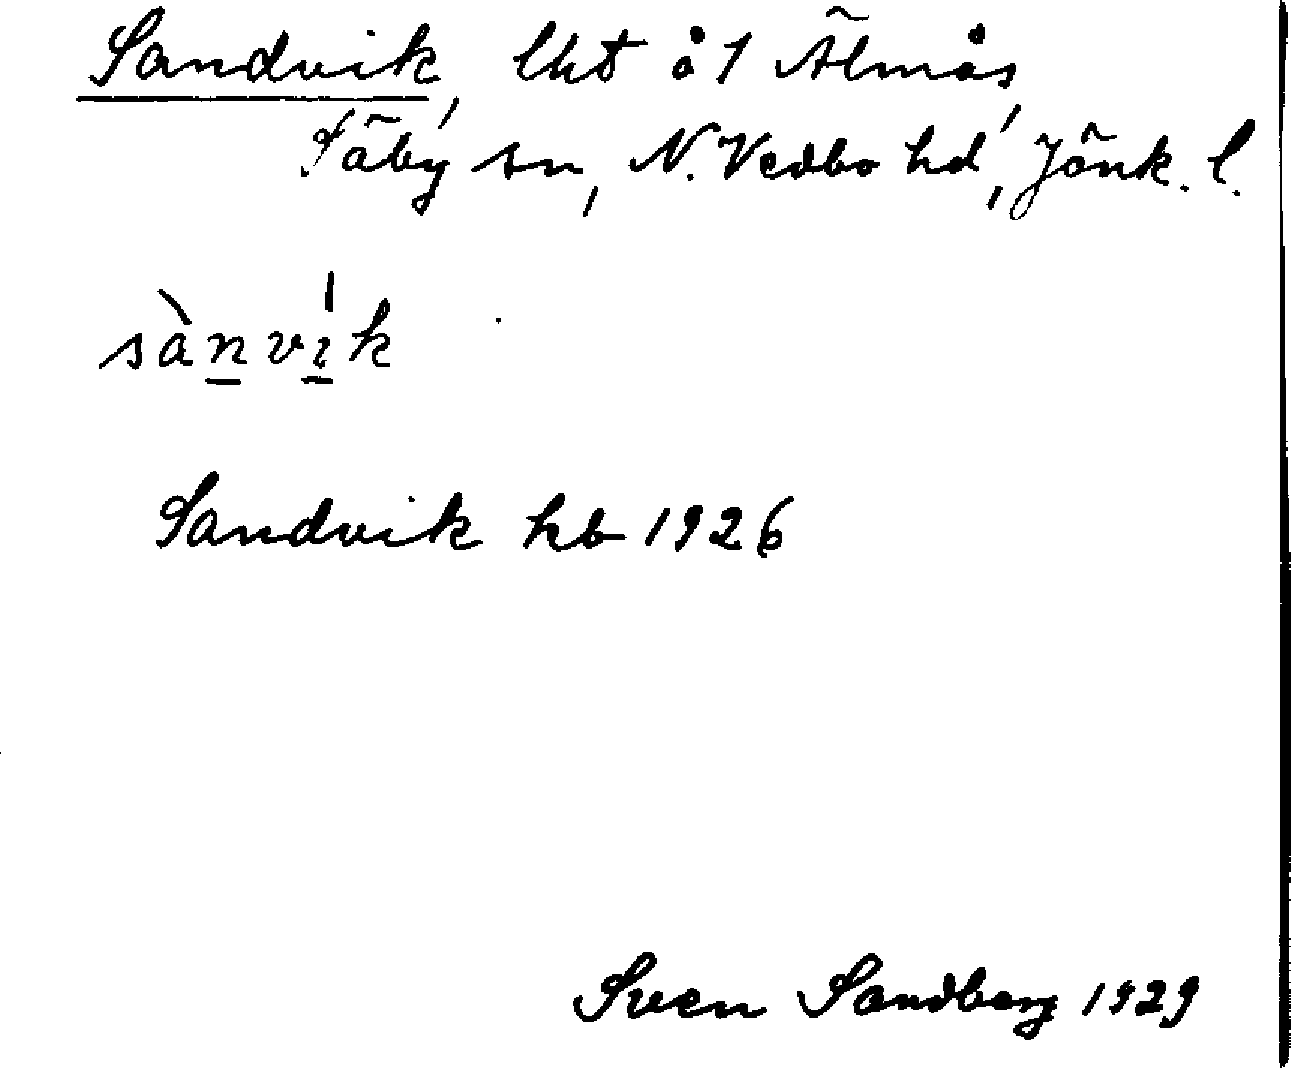 Sandvik, lht å 1 Älmås,
Säby sn, N. Vedbo hd, Jönk. l.
sànvi̍k
Sandvik hb 1926
Sven Sandberg 1929